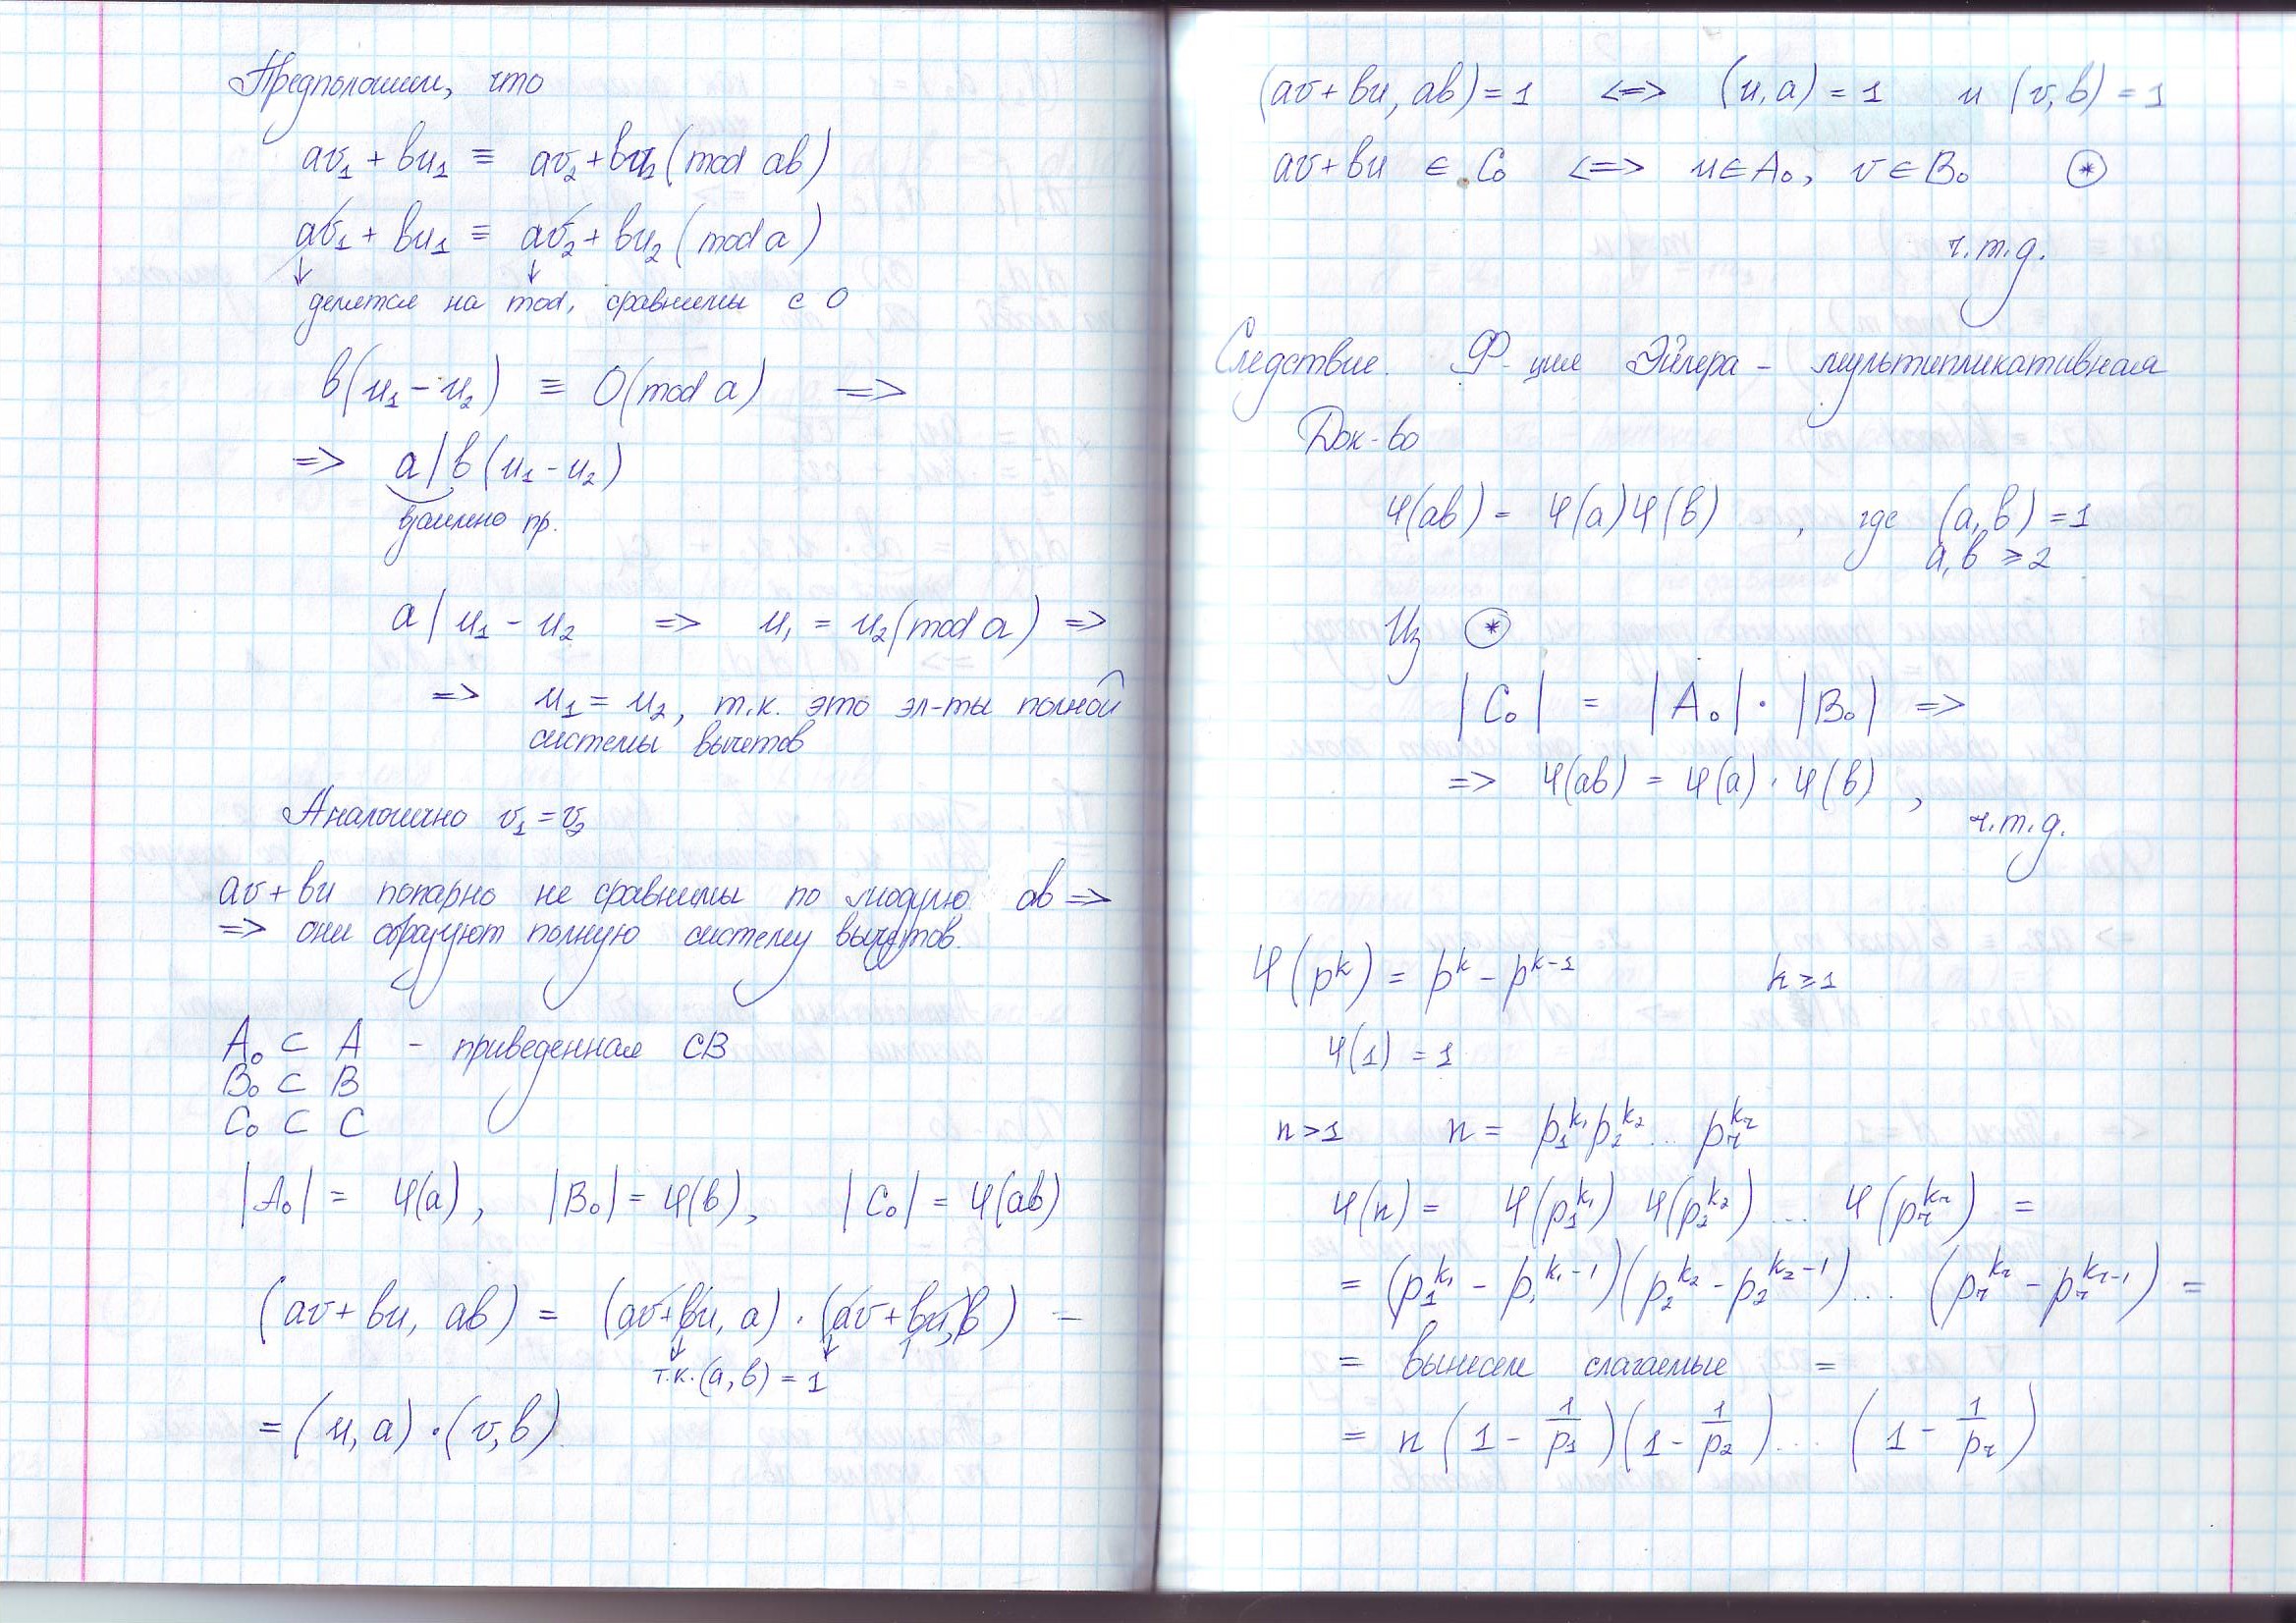 Предположим, что
av₁ + bu₁ ≡ av₂ + bu₂ (mod ab)
av₁ + bu₁ ≡ av₂ + bu₂ (mod a)
делятся на mod, сравнимы с 0
b(u₁ - u₂) ≡ 0 (mod a) =>
=> a | b (u₁ - u₂)
взаимно пр.
a | u₁ - u₂ => u₁ = u₂ (mod a) =>
=> u₁ = u₂, т.к. это эл-ты полной
системы вычетов
Аналогично v₁ = v₂
av + bu попарно не сравнимы по модулю ab =>
=> они образуют полную систему вычетов.
A₀ ⊂ A - приведенная СВ
B₀ ⊂ B
C₀ ⊂ C
|A₀| = φ(a), |B₀| = φ(b), |C₀| = φ(ab)
(av + bu, ab) = (av + bu, a) · (av + bu, b) =
т.к. (a, b) = 1
= (u, a) · (v, b)
(av + bu, ab) = 1 <=> (u, a) = 1 и (v, b) = 1
av + bu ∈ C₀ <=> u ∈ A₀, v ∈ B₀ ⊛
ч.т.д.
Следствие. Ф-ция Эйлера - мультипликативная
Док-во
φ(ab) = φ(a) φ(b) , где (a, b) = 1
a, b ≥ 2
Из ⊛
|C₀| = |A₀| · |B₀| =>
=> φ(ab) = φ(a) · φ(b) ,
ч.т.д.
φ(pᵏ) = pᵏ - pᵏ⁻¹ k ≥ 1
φ(1) = 1
n > 1 n = p₁^k₁ p₂^k₂ ... pᵣ^kᵣ
φ(n) = φ(p₁^k₁) φ(p₂^k₂) ... φ(pᵣ^kᵣ) =
= (p₁^k₁ - p₁^(k₁-1)) (p₂^k₂ - p₂^(k₂-1)) ... (pᵣ^kᵣ - pᵣ^(kᵣ-1)) =
= вынесем слагаемые =
= n (1 - 1/p₁) (1 - 1/p₂) ... (1 - 1/pᵣ)